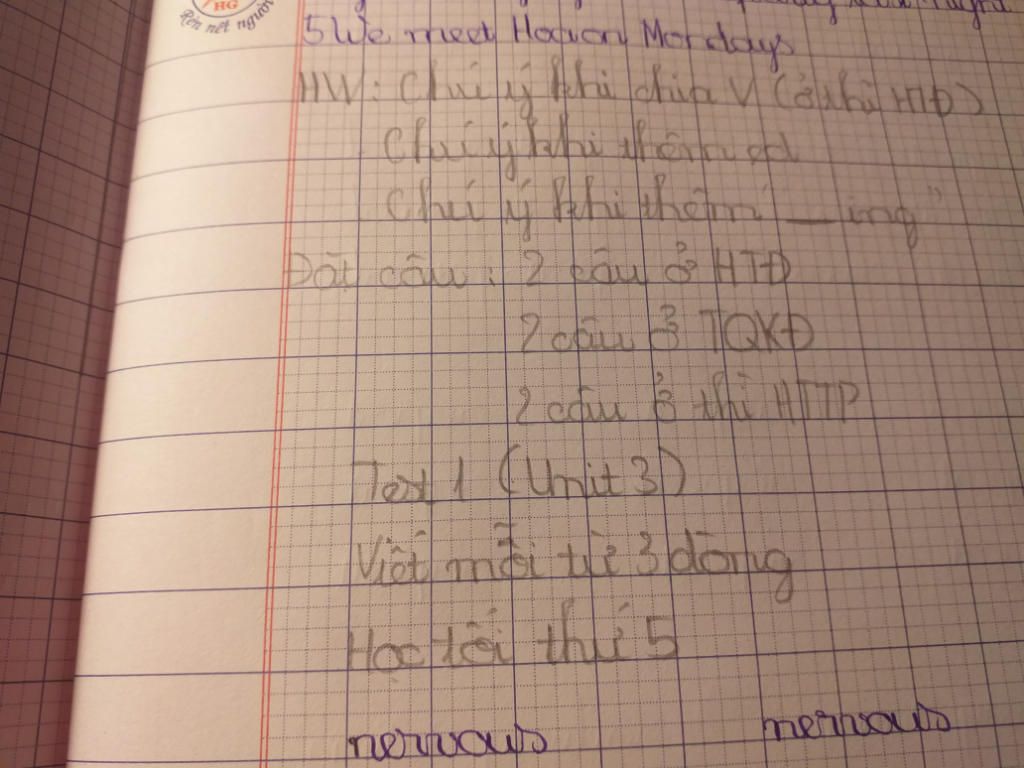 HG
Rèn nét người
5 We meet Hoa on Mondays
HW: Chú ý khi chia V (ở thì HTĐ)
Chú ý khi thêm ed
Chú ý khi thêm "__ing"
Đặt câu: 2 câu ở HTĐ
2 câu ở TQKĐ
2 câu ở thì HTTP
Test 1 (Unit 3)
Viết mỗi từ 3 dòng
Học tối thứ 5
nervous nervous